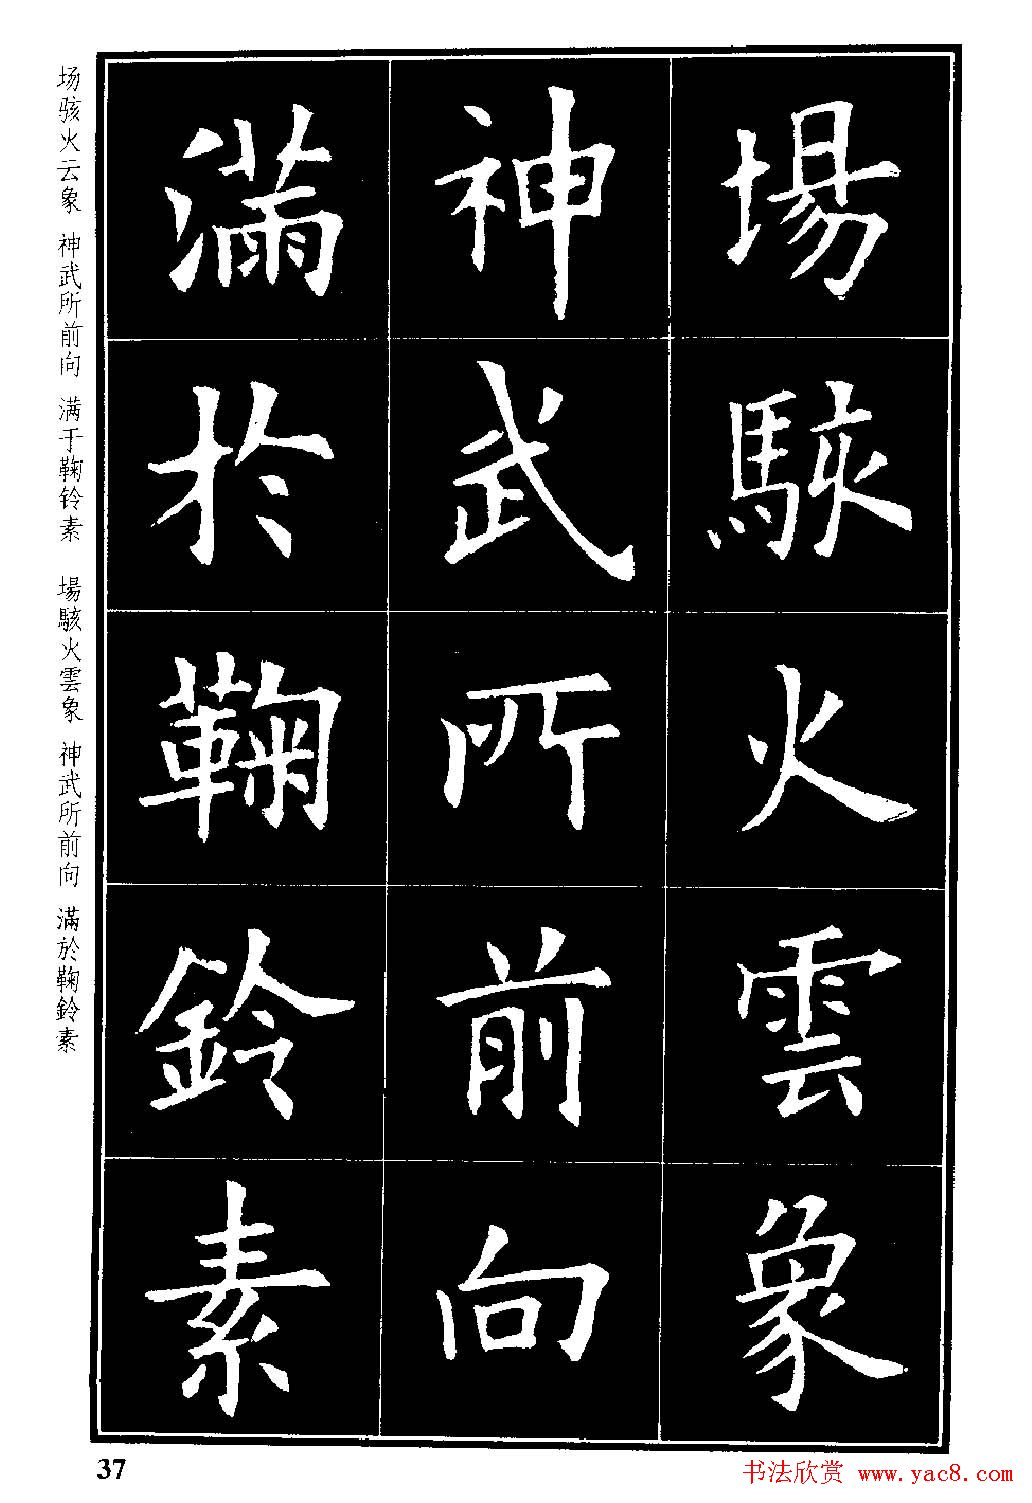 場駭火雲象
神武所前向
滿於鞠鈴素
场骇火云象 神武所前向 满于鞠铃素 場駭火雲象 神武所前向 滿於鞠鈴素
37
书法欣赏 www.yac8.com